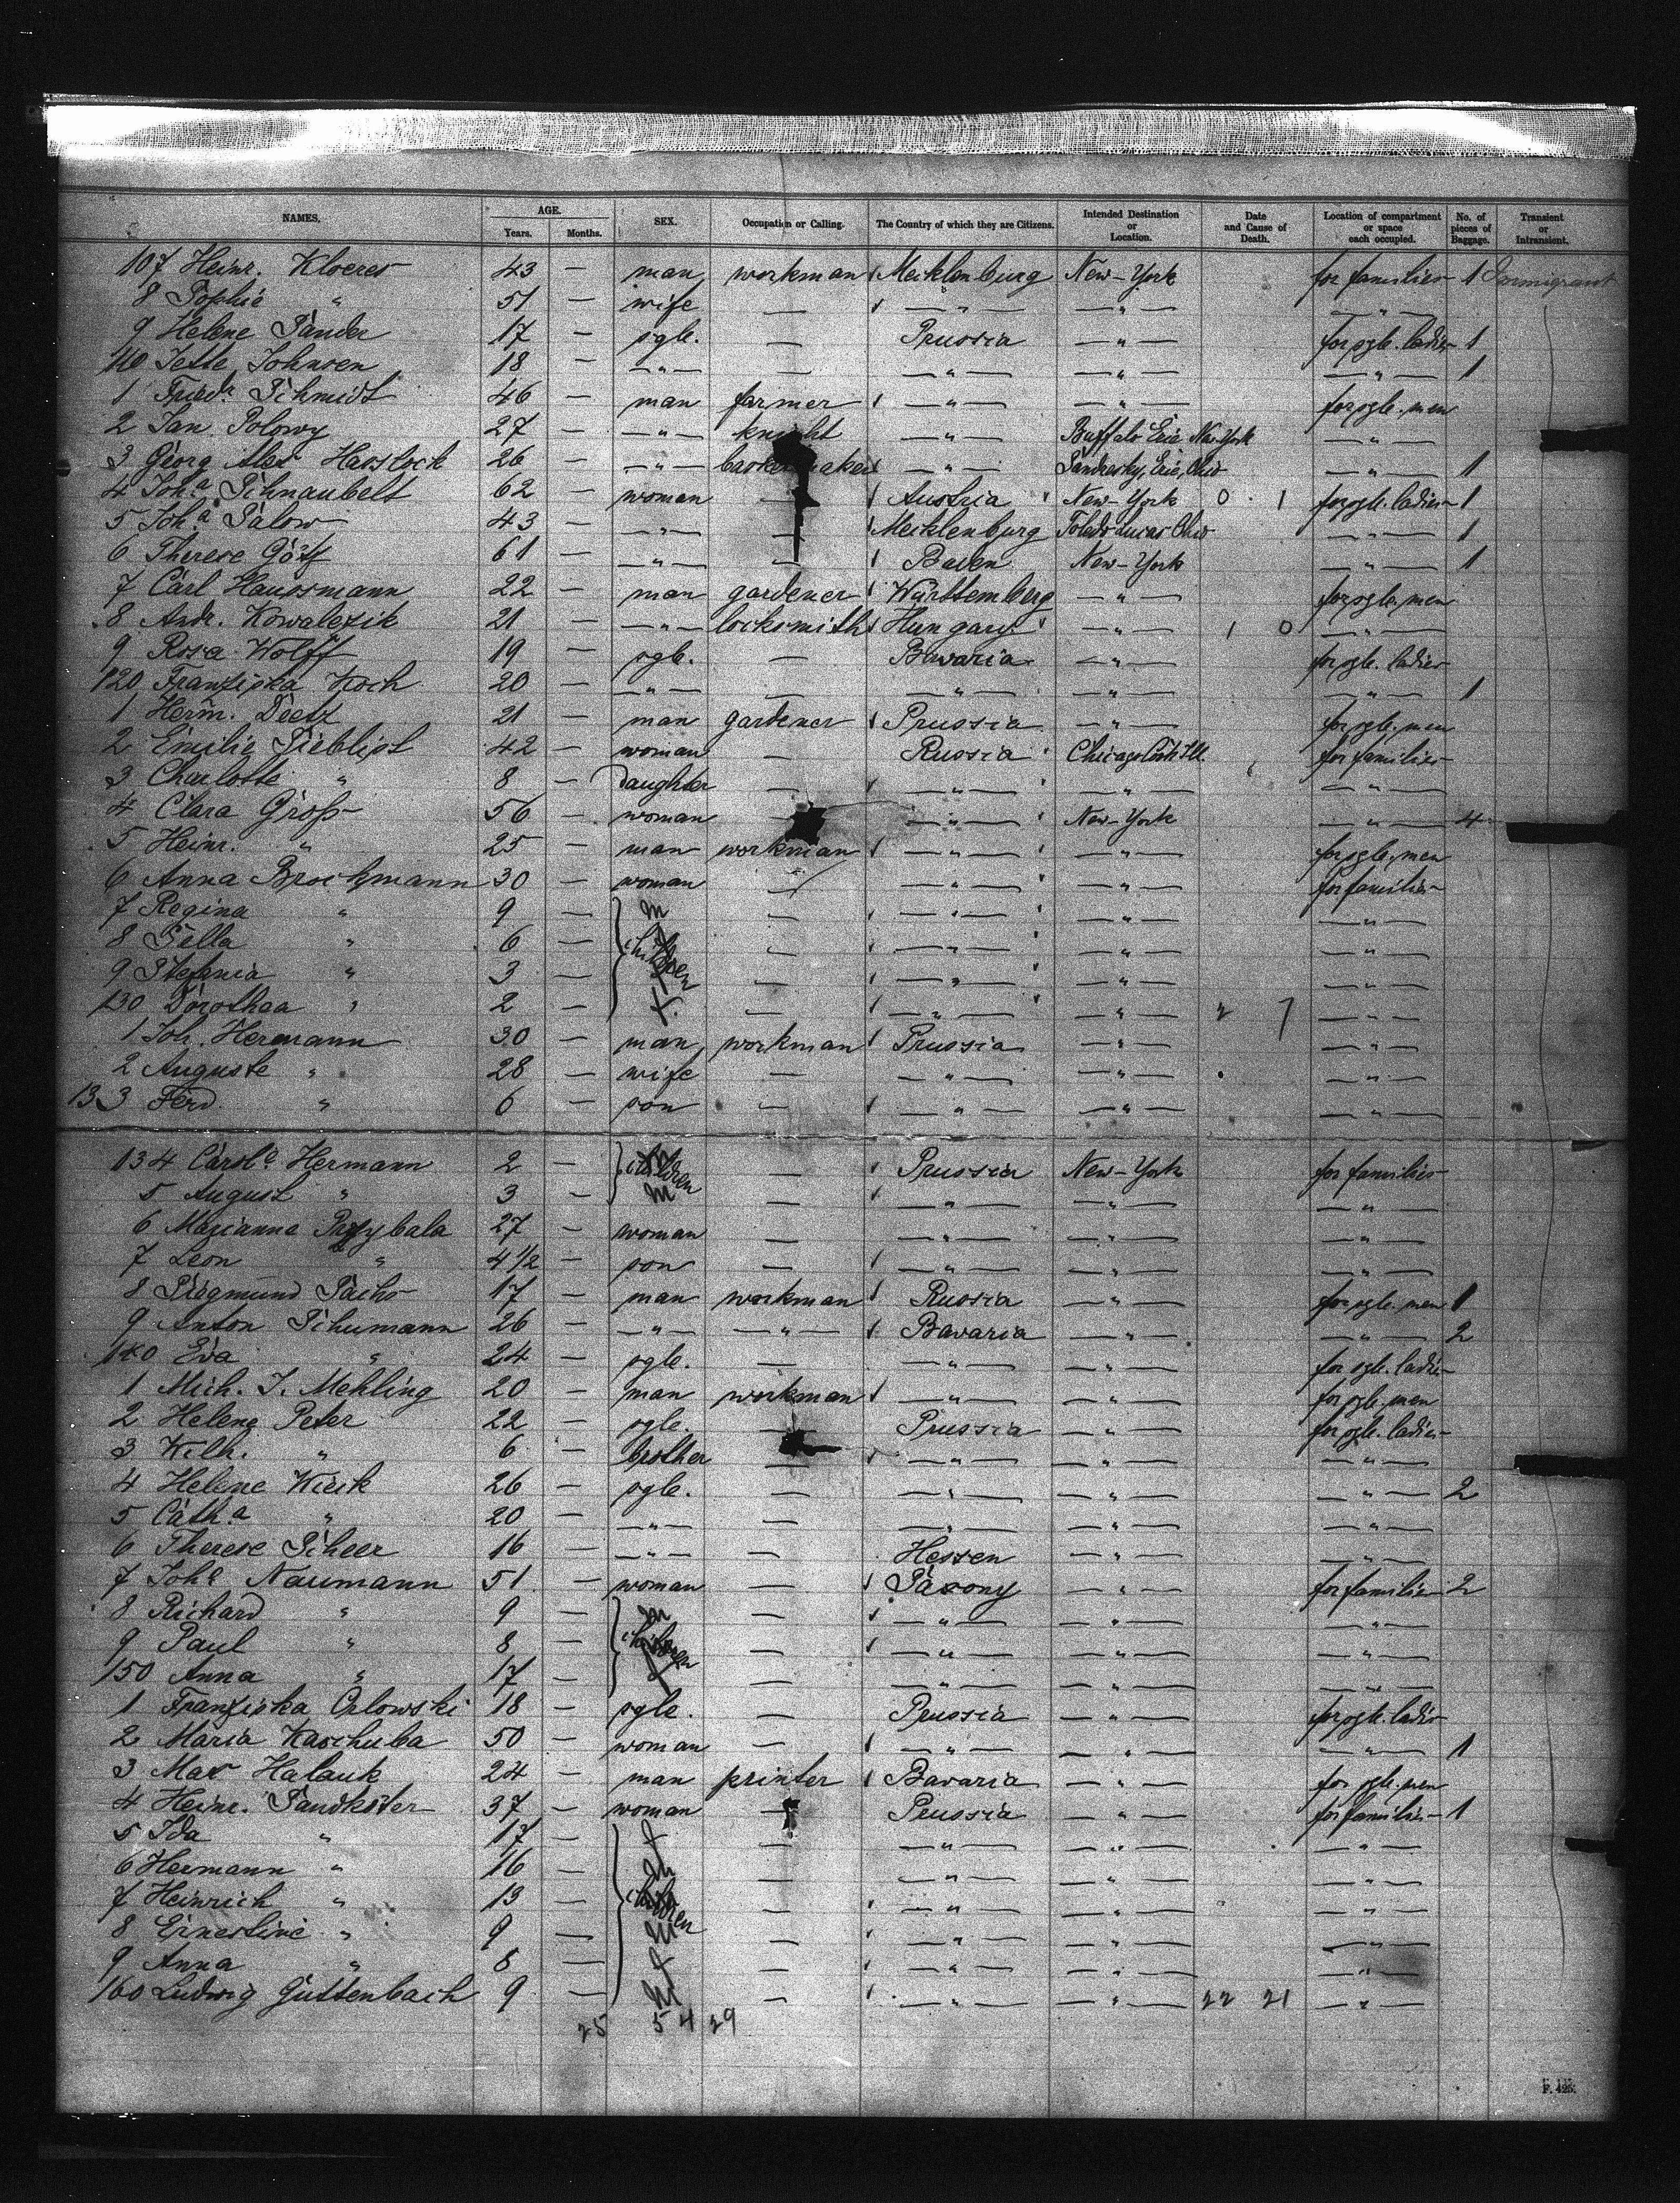 NAMES. AGE. Years. Months. SEX. Occupation or Calling. The Country of which they are Citizens. Intended Destination or Location. Date and Cause of Death. Location of compartment or space each occupied. No. of pieces of Baggage. Transient or Intransient.
107 Heinr. Kloeres 43 — man workman Mecklenburg New-York for families 1
8 Sophie " 51 — wife — — " — — " — — " —
9 Helene Sander 17 — sgle. — Prussia — " — for sgle. ladies 1
110 Jette Johnsen 18 — — " — — — " — — " — — " — 1
1 Friedr. Schmidt 46 — man farmer — " — — " — for sgle. men
2 Jan Polowy 27 — — " — knight — " — Buffalo Erie New-York — " —
3 Georg Alex 26 — — " — — " — Sandusky, Erie, Ohio — " — 1
4 Joh.a Schnaubelt 62 — woman — Austria New-York 0 1 for sgle. ladies 1
5 Joh.a Salow 43 — — " — — Mecklenburg Toledo Lucas Ohio — " — 1
6 Therese Götz 61 — — " — — Baden New-York — " — 1
7 Carl Haussmann 22 — man gardener Württemberg — " — for sgle. men
8 Andr. Kowalczik 21 — — " — locksmith Hungary — " — 1 0 — " —
9 Rosa Wolff 19 — sgle. — Bavaria — " — for sgle. ladies
120 Franziska Koch 20 — — " — — — " — — " — — " — 1
1 Herm. Deetz 21 — man gardener Prussia — " — for sgle. men
2 Emilie Sieblist 42 — woman — Russia Chicago Cook Ill. for families
3 Charlotte " 8 — Daughter — — " — — " — — " —
4 Clara Groß 56 — woman — — " — New-York — " — 4
5 Heinr. " 25 — man workman — " — — " — for sgle. men
6 Anna Brochmann 30 — woman — — " — — " — for families
7 Regina " 9 — m — — " — — " — — " —
8 Sella " 6 — children — — " — — " — — " —
9 Stefania " 3 — f — — " — — " — — " —
130 Dorothea " 2 — f. — — " — — " — 2 7 — " —
1 Joh. Hermann 30 — man workman Prussia — " — — " —
2 Auguste " 28 — wife — — " — — " — — " —
133 Ferd. " 6 — son — — " — — " — — " —
134 Carol.e Hermann 2 — children — Prussia New-York for families
5 August " 3 — m — — " — — " — — " —
6 Marianna Przybala 27 — woman — — " — — " — — " —
7 Leon " 4 1/2 — son — — " — — " — — " —
8 Siegmund Sachs 17 — man workman Russia — " — for sgle. men 1
9 Anton Schumann 26 — — " — — " — Bavaria — " — — " — 2
140 Eva " 24 — sgle. — — " — — " — for sgle. ladies
1 Mich. J. Mehling 20 — man workman — " — — " — for sgle. men
2 Helene Peter 22 — sgle. — Prussia — " — for sgle. ladies
3 Wilh. " 6 — brother — — " — — " — — " —
4 Helene Wieck 26 — sgle. — — " — — " — — " — 2
5 Cath.a " 20 — — " — — — " — — " — — " —
6 Therese Scheer 16 — — " — — Hessen — " — — " —
7 Joh.e Naumann 51 — woman — Saxony — " — for families 2
8 Richard " 9 — m — — " — — " — — " —
9 Paul " 8 — children — — " — — " — — " —
150 Anna " 17 — f — — " — — " — — " —
1 Franziska Orlowski 18 — sgle. — Prussia — " — for sgle. ladies
2 Maria Kaschuba 50 — woman — — " — — " — — " — 1
3 Max Halauk 24 — man printer Bavaria — " — for sgle. men
4 Heinr. Sandkoter 37 — woman — Prussia — " — for families 1
5 Ida " 17 — f — — " — — " — — " —
6 Hermann " 16 — m — — " — — " — — " —
7 Heinrich " 13 — children — — " — — " — — " —
8 Ernestine " 9 — m — — " — — " — — " —
9 Anna " 8 — f — — " — — " — — " —
160 Ludwig Guttenbach 9 — m — — " — — " — 22 21 — " —
25 54 29